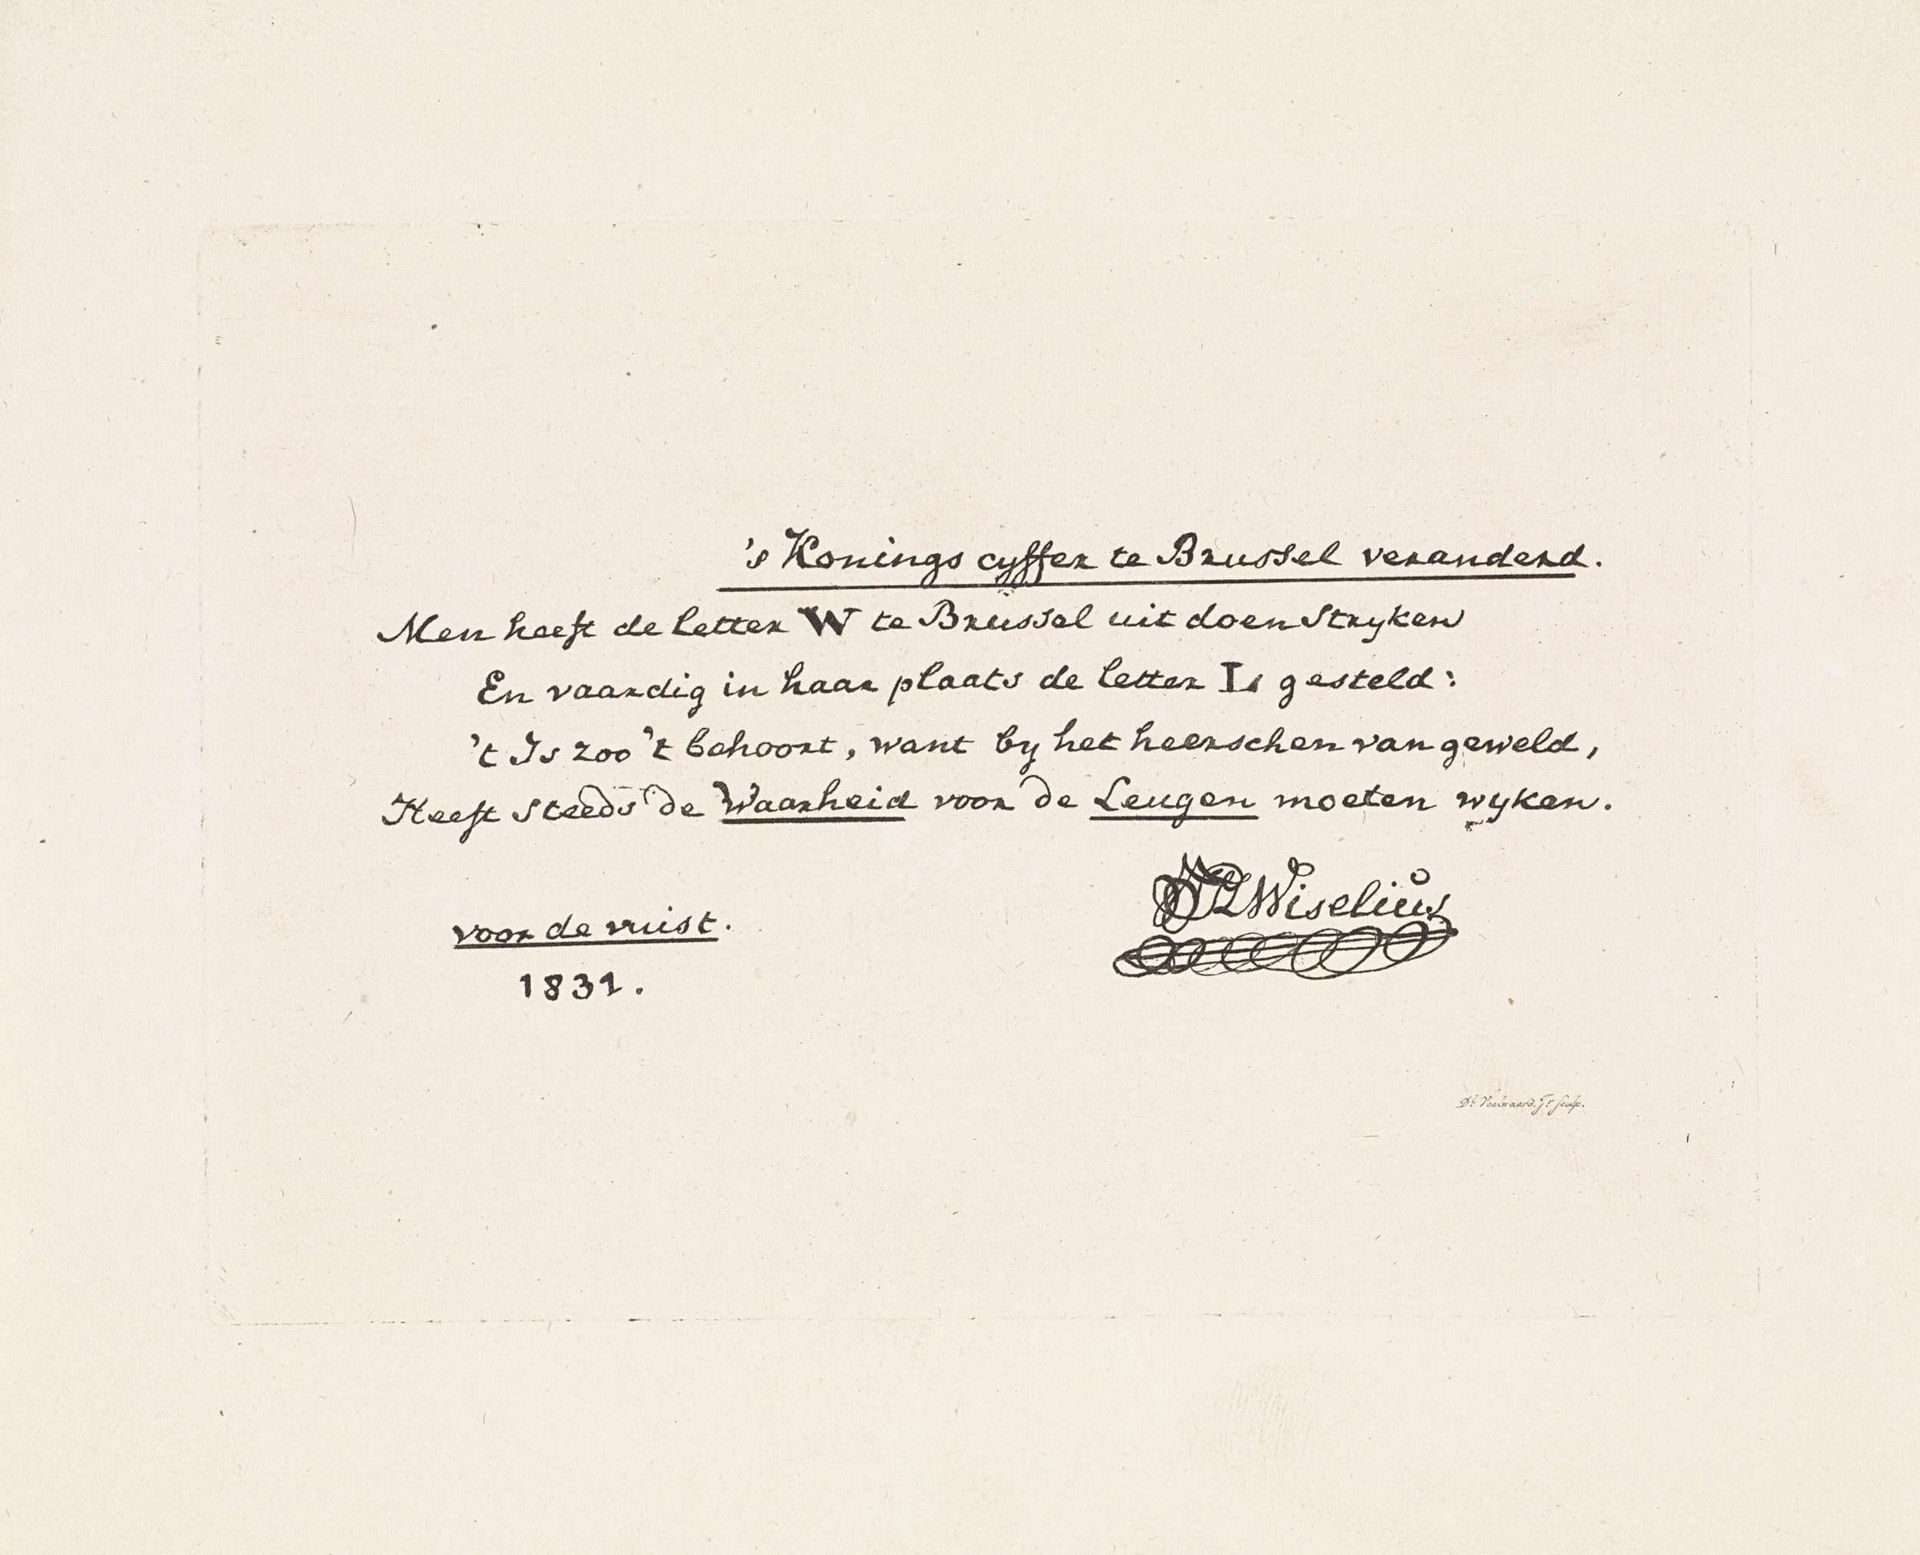 's Konings cyffer te Brussel veranderd.
Men heeft de letter W te Brussel uit doen stryken
En vaardig in haar plaats de letter L gesteld:
't Is zoo 't behoort, want by het heerschen van geweld,
Heeft steeds de Waarheid voor de Leugen moeten wyken.
voor de vuist.
1831.
Wiselius
Dk. Veelwaard, Jr. sculp.